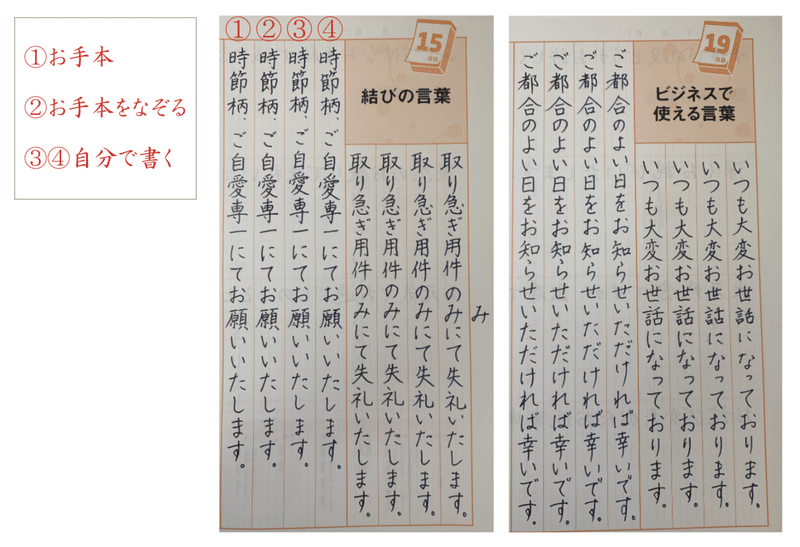 ①お手本
②お手本をなぞる
③④自分で書く
①②③④
15日目
結びの言葉
み
取り急ぎ用件のみにて失礼いたします。
取り急ぎ用件のみにて失礼いたします。
取り急ぎ用件のみにて失礼いたします。
取り急ぎ用件のみにて失礼いたします。
時節柄、ご自愛専一にてお願いいたします。
時節柄、ご自愛専一にてお願いいたします。
時節柄、ご自愛専一にてお願いいたします。
時節柄、ご自愛専一にてお願いいたします。
19日目
ビジネスで
使える言葉
いつも大変お世話になっております。
いつも大変お世話になっております。
いつも大変お世話になっております。
いつも大変お世話になっております。
ご都合のよい日をお知らせいただければ幸いです。
ご都合のよい日をお知らせいただければ幸いです。
ご都合のよい日をお知らせいただければ幸いです。
ご都合のよい日をお知らせいただければ幸いです。